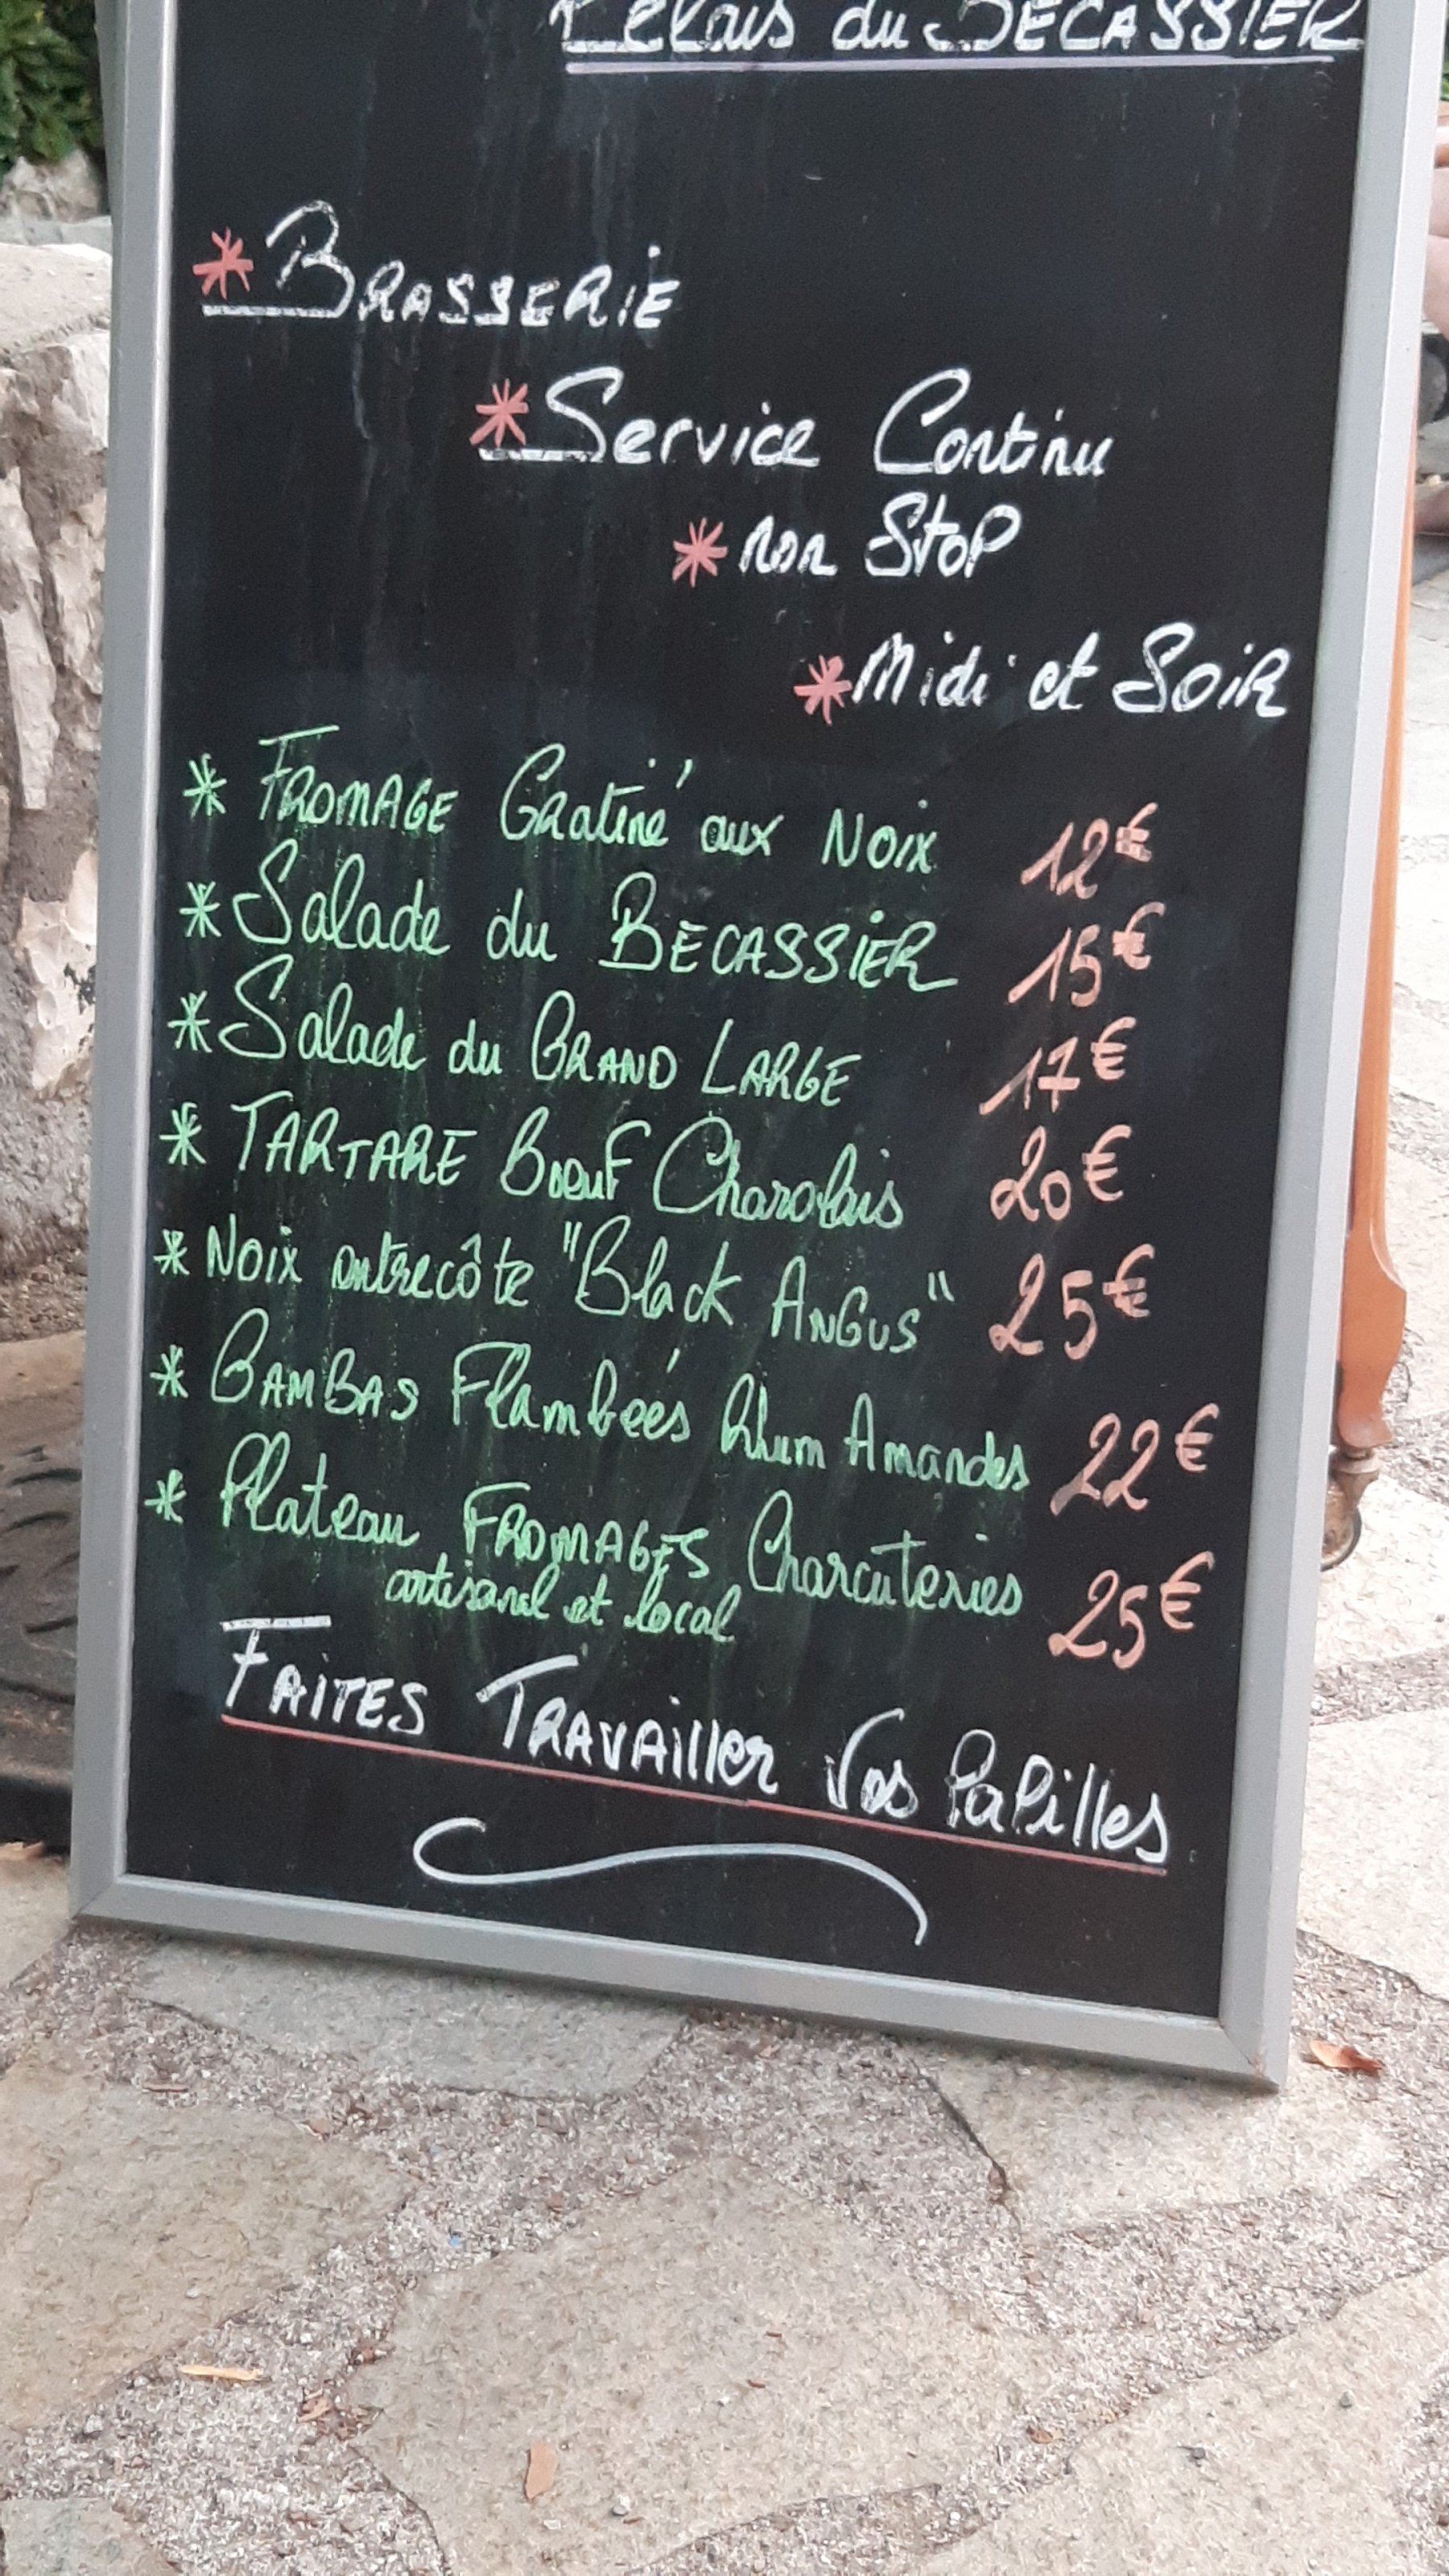 Relais du BECASSIER
* BRASSERIE
* Service Continu
* non StoP
* Midi et SoiR
* FROMAGE GRatiné aux Noix 12€
* Salade du BECASSiER 15€
* Salade du GRAND LARGE 17€
* TARTARE BoeuF Charolais 20€
* Noix entrecôte "Black ANGUS" 25€
* GAMBAS Flambées Rhum Amandes 22€
* Plateau FROMAGES Charcuteries 25€
artisanal et local
FAITES TRAVAiller Vos PaPilles